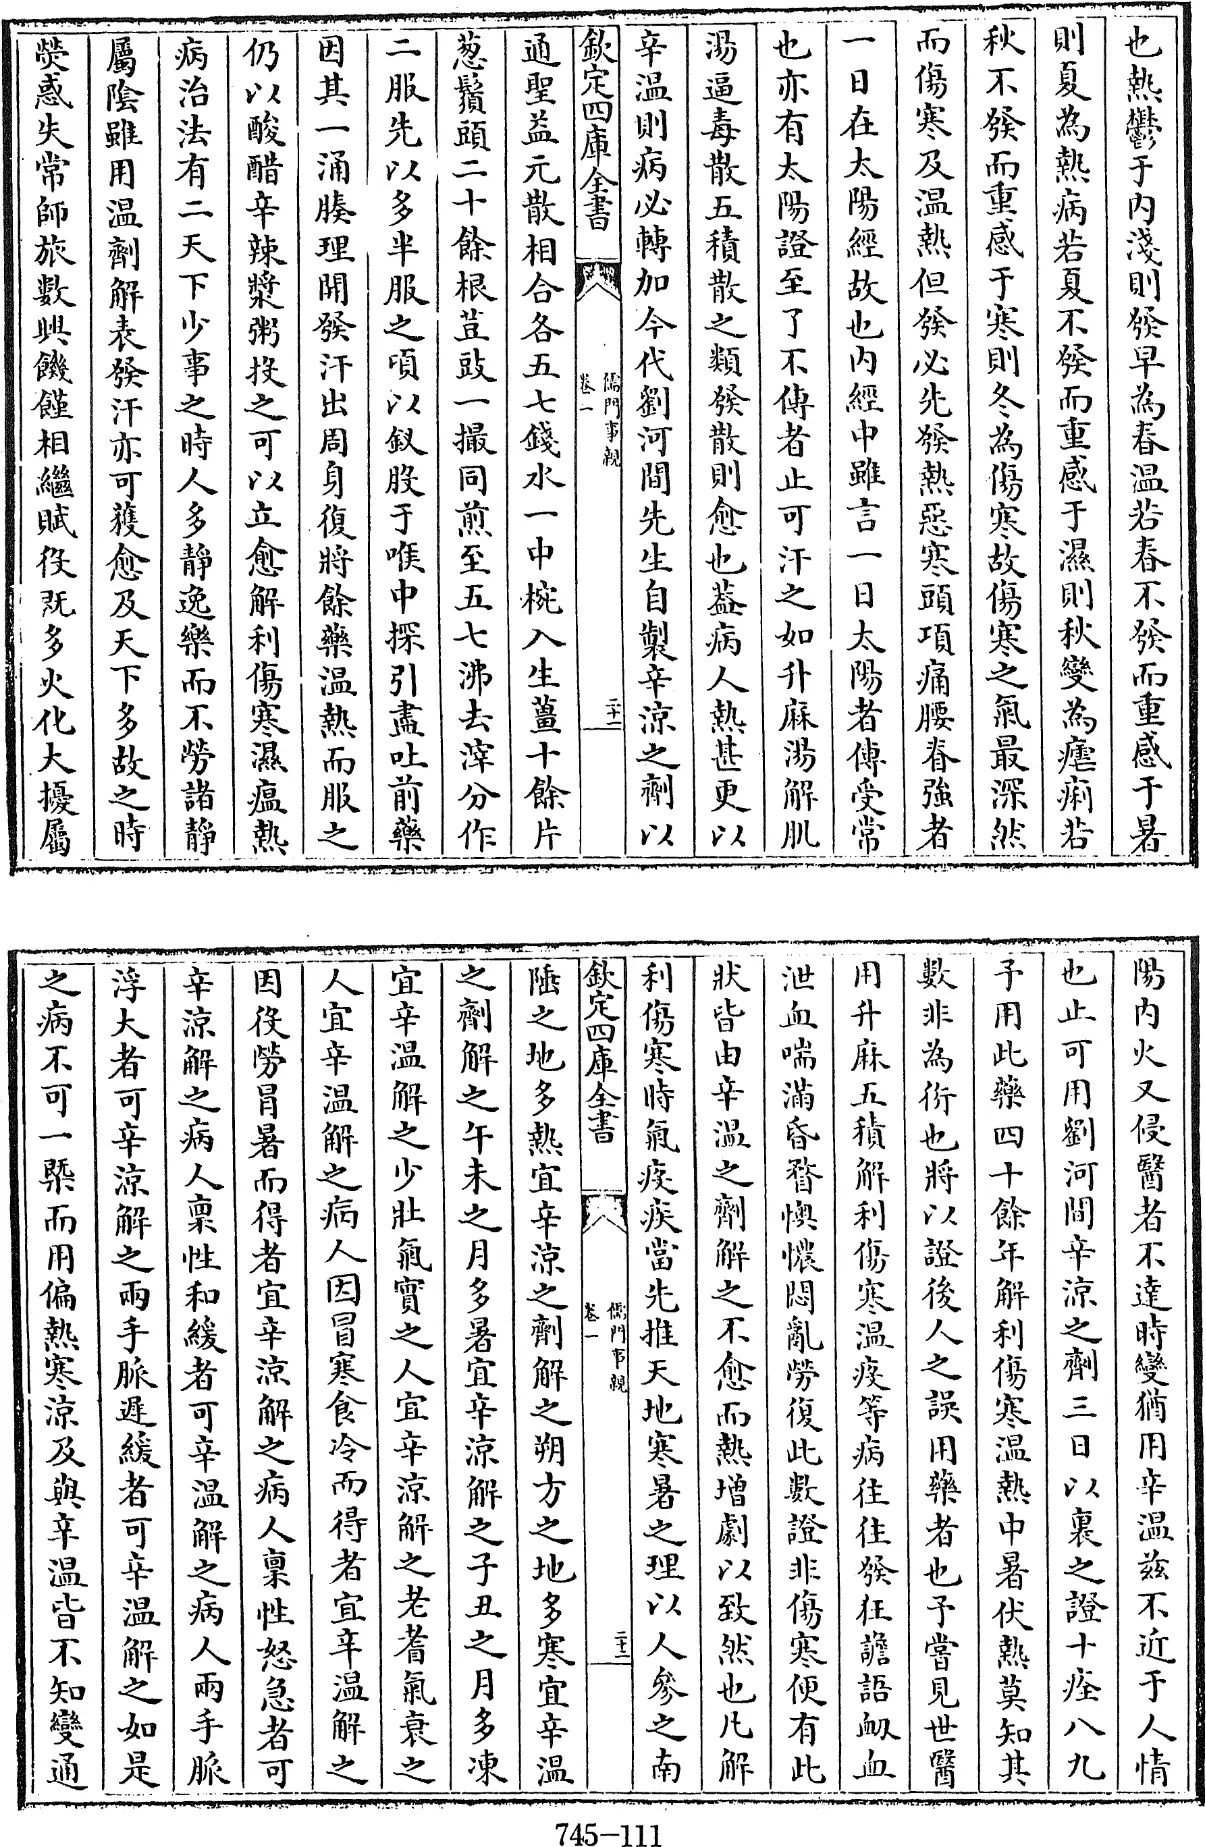 也熱鬱于内淺則發早為春温若春不發而重感于暑
則夏為熱病若夏不發而重感于濕則秋變為瘧痢若
秋不發而重感于寒則冬為傷寒故傷寒之氣最深然
而傷寒及温熱但發必先發熱惡寒頭項痛腰脊強者
一日在太陽經故也内經中雖言一日太陽者傳受常
也亦有太陽證至了不傳者止可汗之如升麻湯解肌
湯逼毒散五積散之類發散則愈也葢病人熱甚更以
辛温則病必轉加今代劉河間先生自製辛涼之劑以
欽定四庫全書
儒門事親
卷一
二十一
通聖益元散相合各五七錢水一中椀入生薑十餘片
葱鬚頭二十餘根荳豉一撮同煎至五七沸去滓分作
二服先以多半服之頃以釵股于喉中探引盡吐前藥
因其一涌腠理開發汗出周身復將餘藥温熱而服之
仍以酸醋辛辣漿粥投之可以立愈解利傷寒濕瘟熱
病治法有二天下少事之時人多靜逸樂而不勞諸靜
屬陰雖用温劑解表發汗亦可獲愈及天下多故之時
熒惑失常師旅數興饑饉相繼賦役既多火化大擾屬
陽内火又侵醫者不達時變猶用辛温兹不近于人情
也止可用劉河間辛涼之劑三日以裏之證十痊八九
予用此藥四十餘年解利傷寒温熱中暑伏熱莫知其
數非為衒也將以證後人之誤用藥者也予嘗見世醫
用升麻五積解利傷寒温疫等病往往發狂譫語衂血
泄血喘滿昏瞀懊憹悶亂勞復此數證非傷寒便有此
狀皆由辛温之劑解之不愈而熱增劇以致然也凡解
利傷寒時氣疫疾當先推天地寒暑之理以人參之南
欽定四庫全書
儒門事親
卷一
二十二
陲之地多熱宜辛涼之劑解之朔方之地多寒宜辛温
之劑解之午未之月多暑宜辛涼解之子丑之月多凍
宜辛温解之少壯氣實之人宜辛涼解之老耆氣衰之
人宜辛温解之病人因冒寒食冷而得者宜辛温解之
因役勞冒暑而得者宜辛涼解之病人禀性怒急者可
辛涼解之病人禀性和緩者可辛温解之病人兩手脈
浮大者可辛涼解之兩手脈遲緩者可辛温解之如是
之病不可一槩而用偏熱寒涼及與辛温皆不知變通
745-111